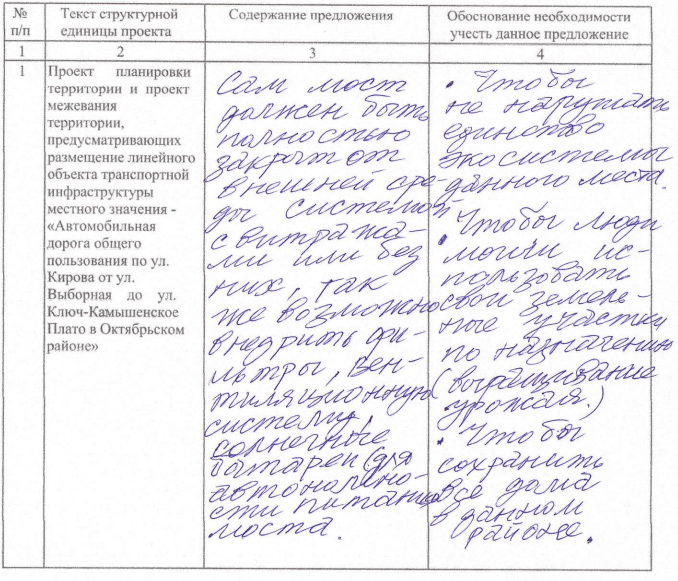 № п/п
Текст структурной единицы проекта
Содержание предложения
Обоснование необходимости учесть данное предложение
1
2
3
4
1
Проект планировки
территории и проект
межевания
территории,
предусматривающих
размещение линейного
объекта транспортной
инфраструктуры
местного значения -
«Автомобильная
дорога общего
пользования по ул.
Кирова от ул.
Выборная до ул.
Ключ-Камышенское
Плато в Октябрьском
районе»
Сам мост
должен быть
полностью
закрыт от
внешней сре-
ды системой
с витража-
ми или без
них, так
же возможно
внедрить фи-
льтры, вен-
тиляционную
систему,
солнечные
батареи (для
автономно-
сти питания
моста.
• Чтобы
не нарушать
единство
экосистемы
данного места.
• Чтобы люди
могли ис-
пользовать
свои земель-
ные участки
по назначению
(выращивание
урожая.)
• Чтобы
сохранить
все дома
в данном
районе.